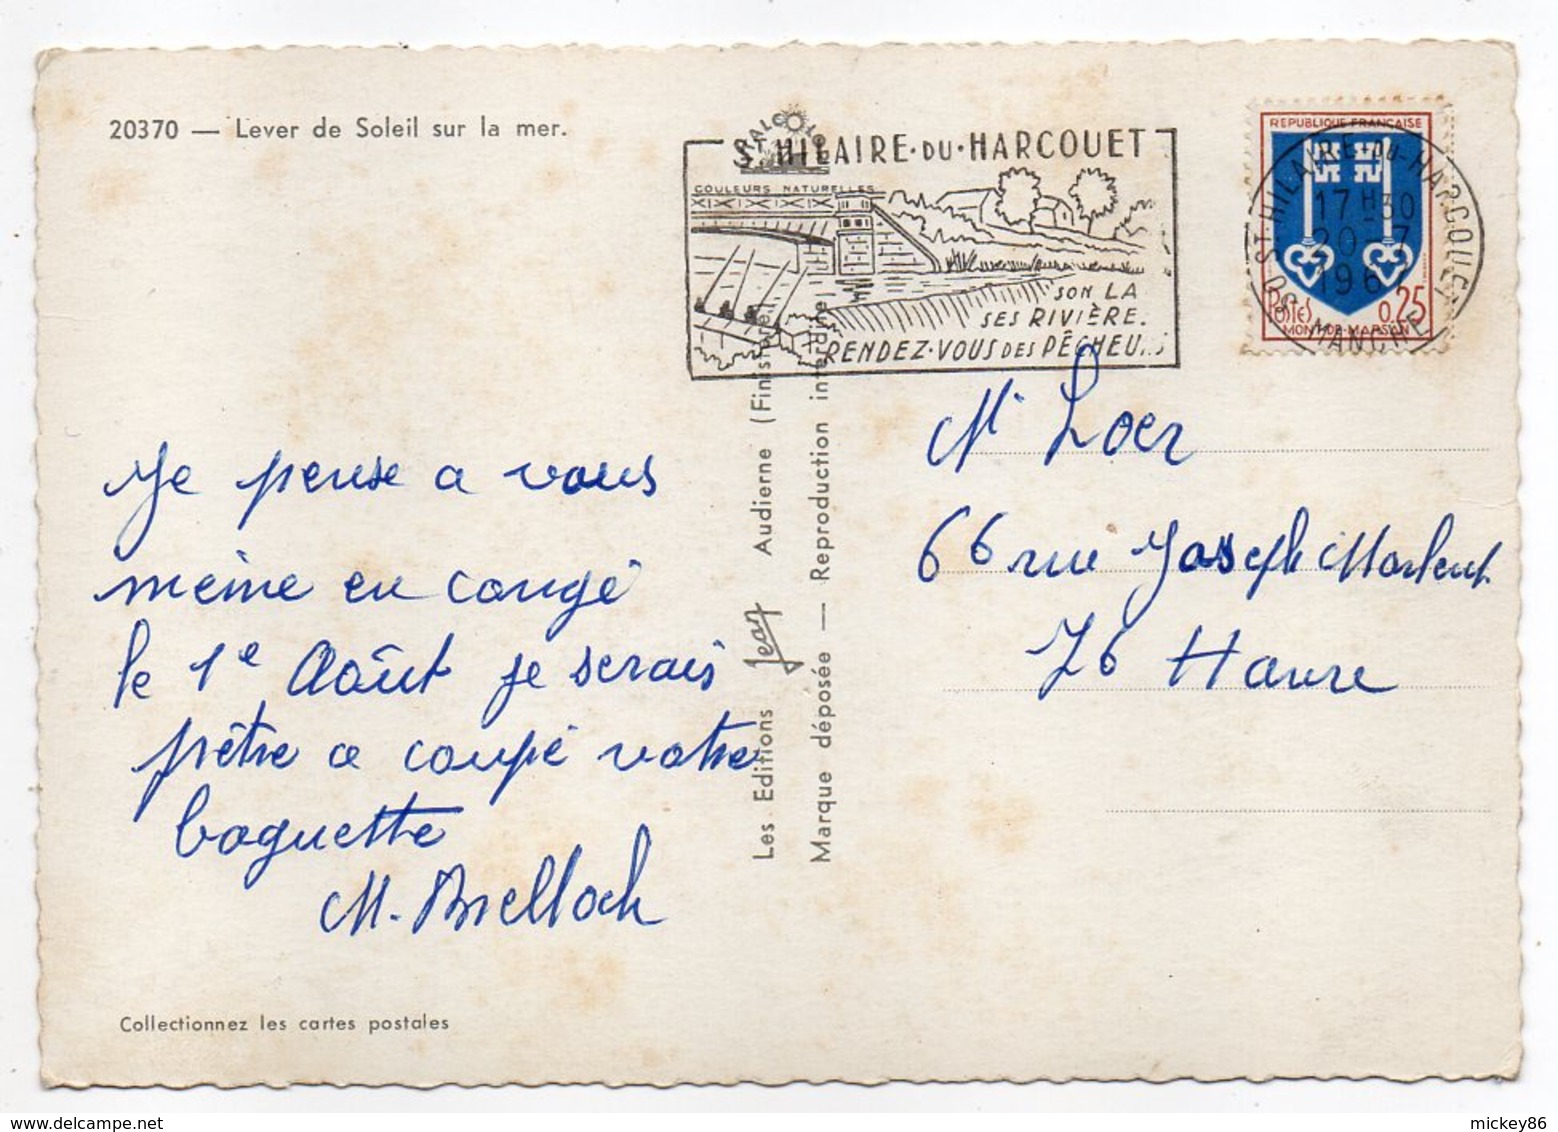 20370 — Lever de Soleil sur la mer.
St HILAIRE·DU·HARCOUET
COULEURS NATURELLES
SON LA
SES RIVIÈRE.
RENDEZ·VOUS DES PÊCHEU
REPUBLIQUE FRANÇAISE
ST-HILAIRE-DU-HARCOUET
17 H 30
20 - 7
196
50 MANCHE
Postes 0,25
MONT-DE-MARSAN
Je pense a vous
même en congé
le 1e Août je serais
prêtre a coupé votre
baguette
M. Brelloch
Collectionnez les cartes postales
Les Editions Jean Audienne (Finistère)
Marque déposée — Reproduction interdite
Mr Loer
66 rue Joseph Morlent
76 Havre
mickey86